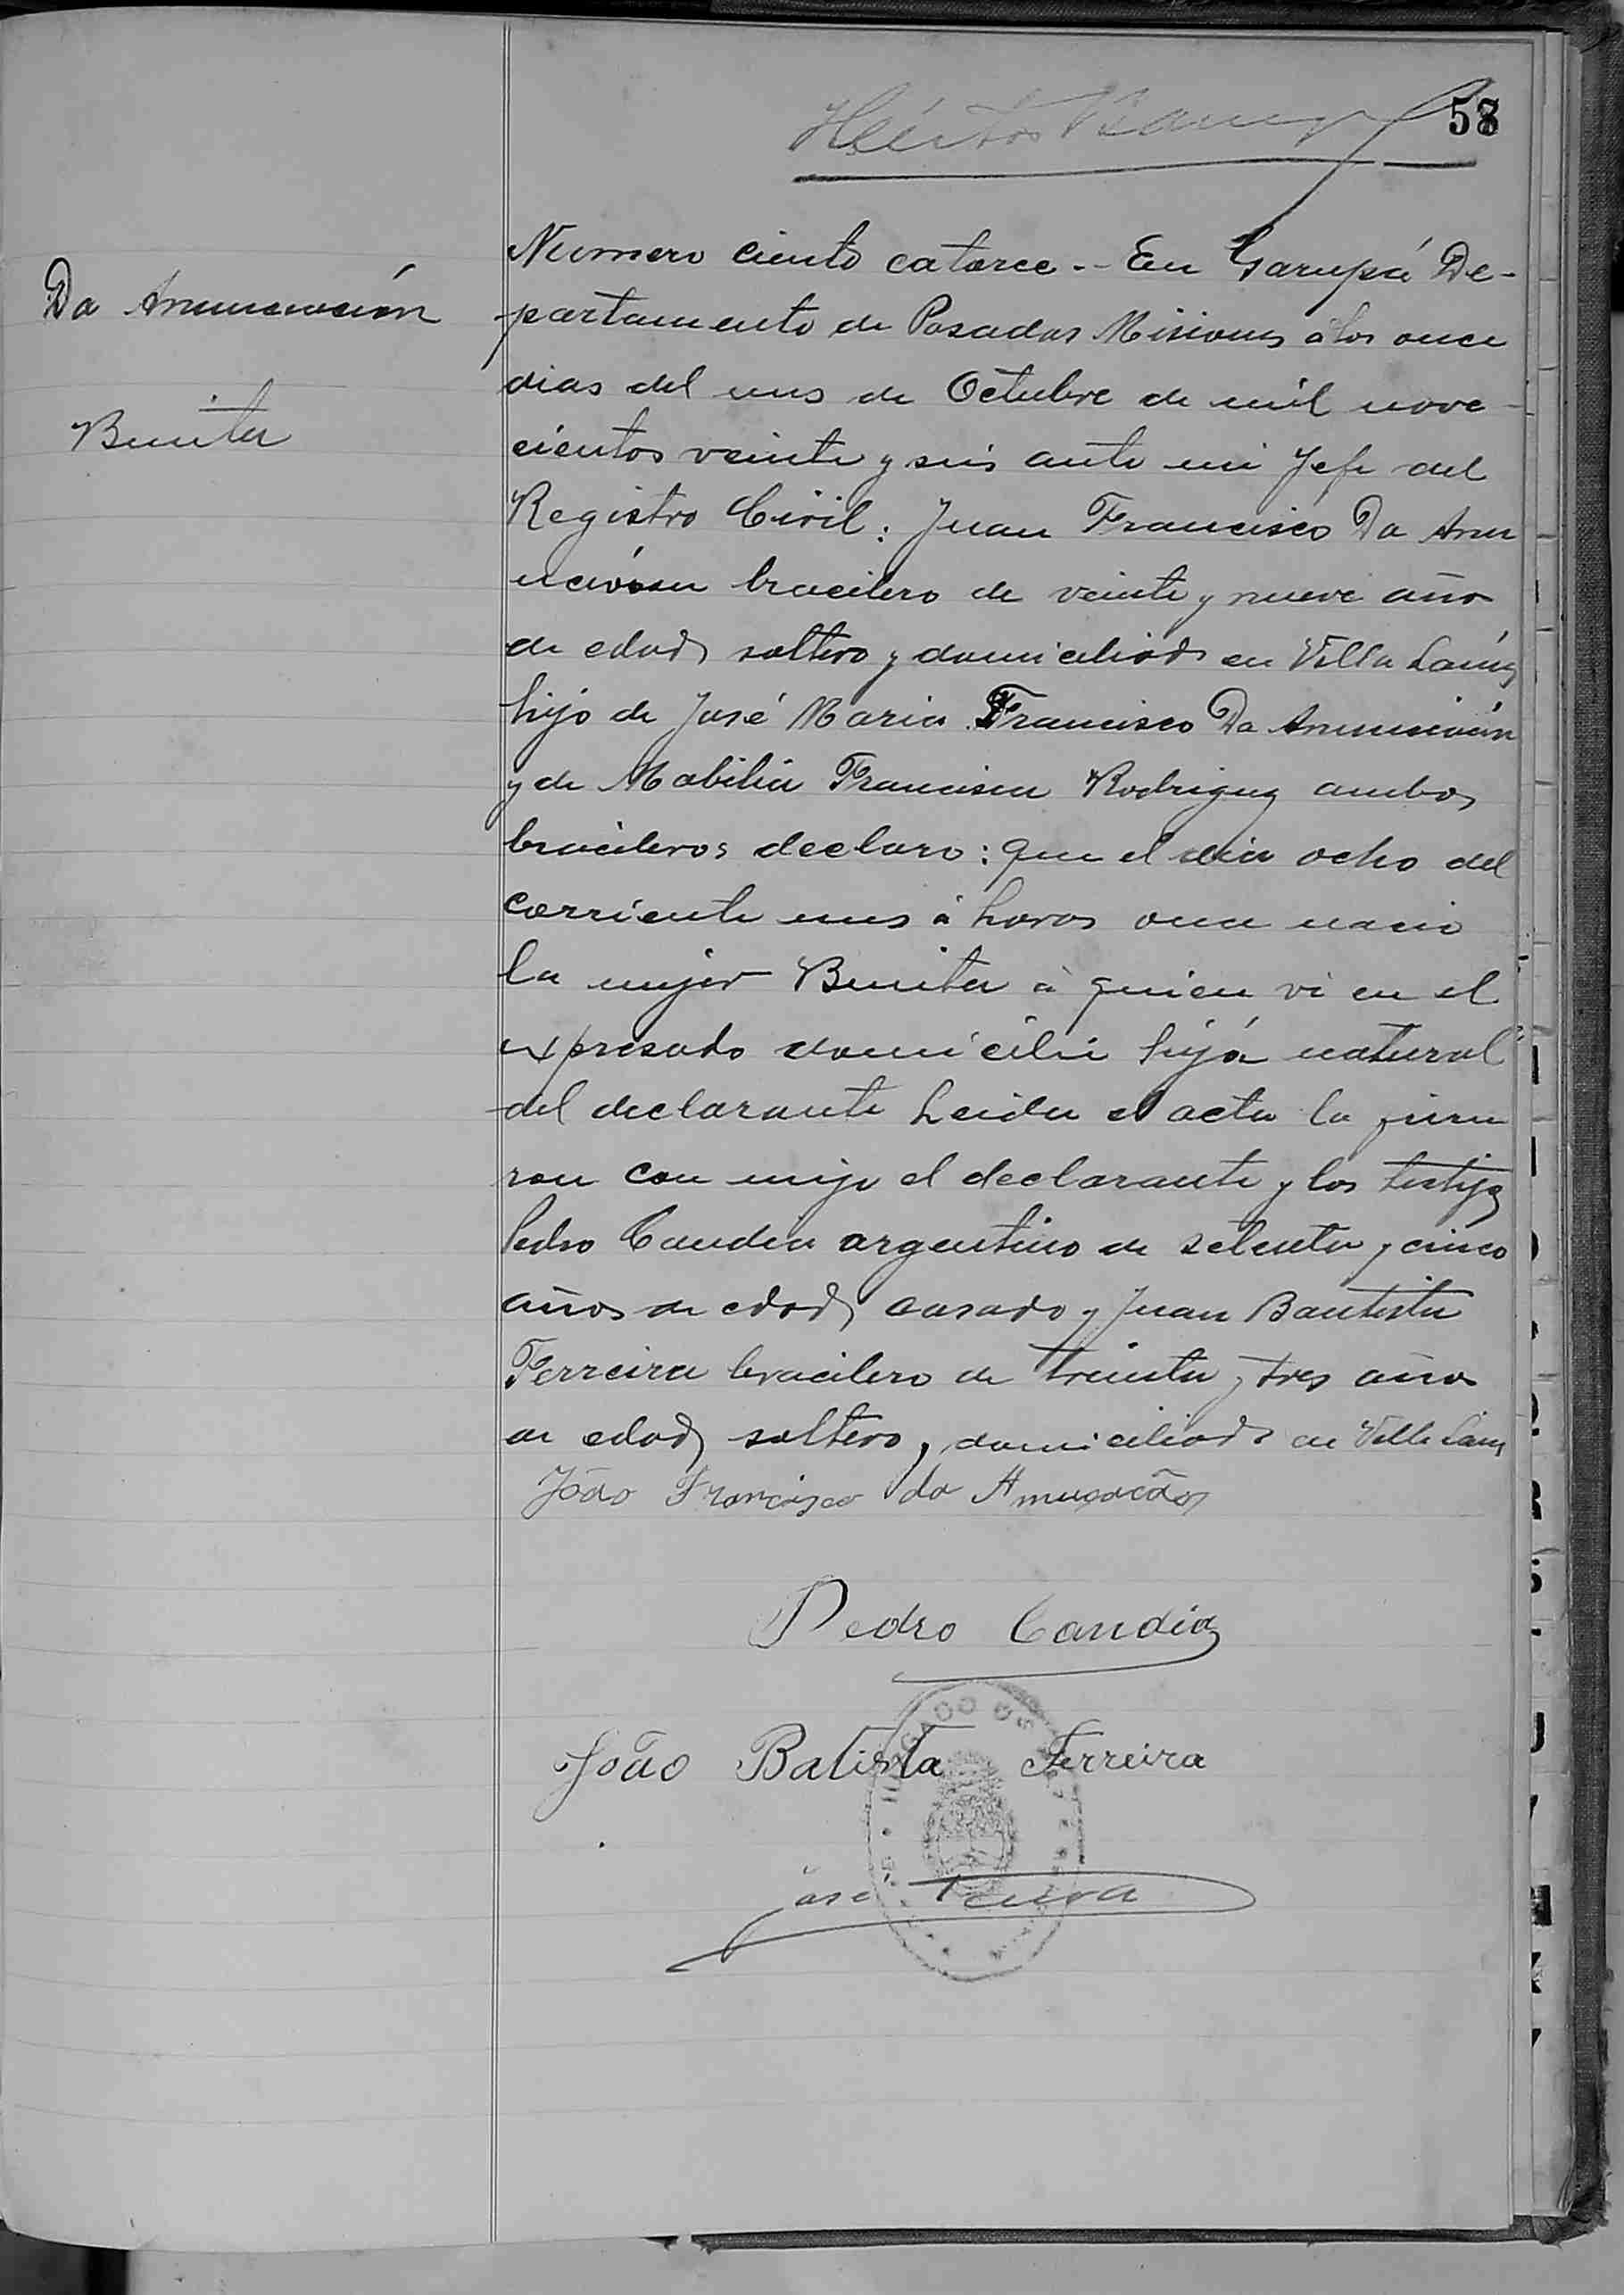 58
Da Anunciación
Benita
Numero ciento catorce.- En Garupá De-
partamento de Posadas Misiones á los once
dias del mes de Octubre de mil nove-
cientos veinte y seis ante mi Jefe del
Registro Civil: Juan Francisco Da Anun
bracilero de veinte y nueve años
de edad soltero y domiciliado en Villa Lanús
hijo de José Maria Francisco Da Anunciación
y de Mabilia Francisca Rodriguez ambos
bracileros declaro: que el dia ocho del
corriente mes á horas once nacio
la mujer Benita á quien vi en el
expresado domicilio hija natural
del declarante Leida el acta la firma
ron con migo el declarante y los testigos
Pedro Candia argentino de setenta y cinco
años de edad casado y Juan Bautista
Ferreira bracilero de treinta y tres años
de edad soltero, domiciliado en Villa Lanus
João Francisco da
Pedro Candia
João Batista Ferreira
José